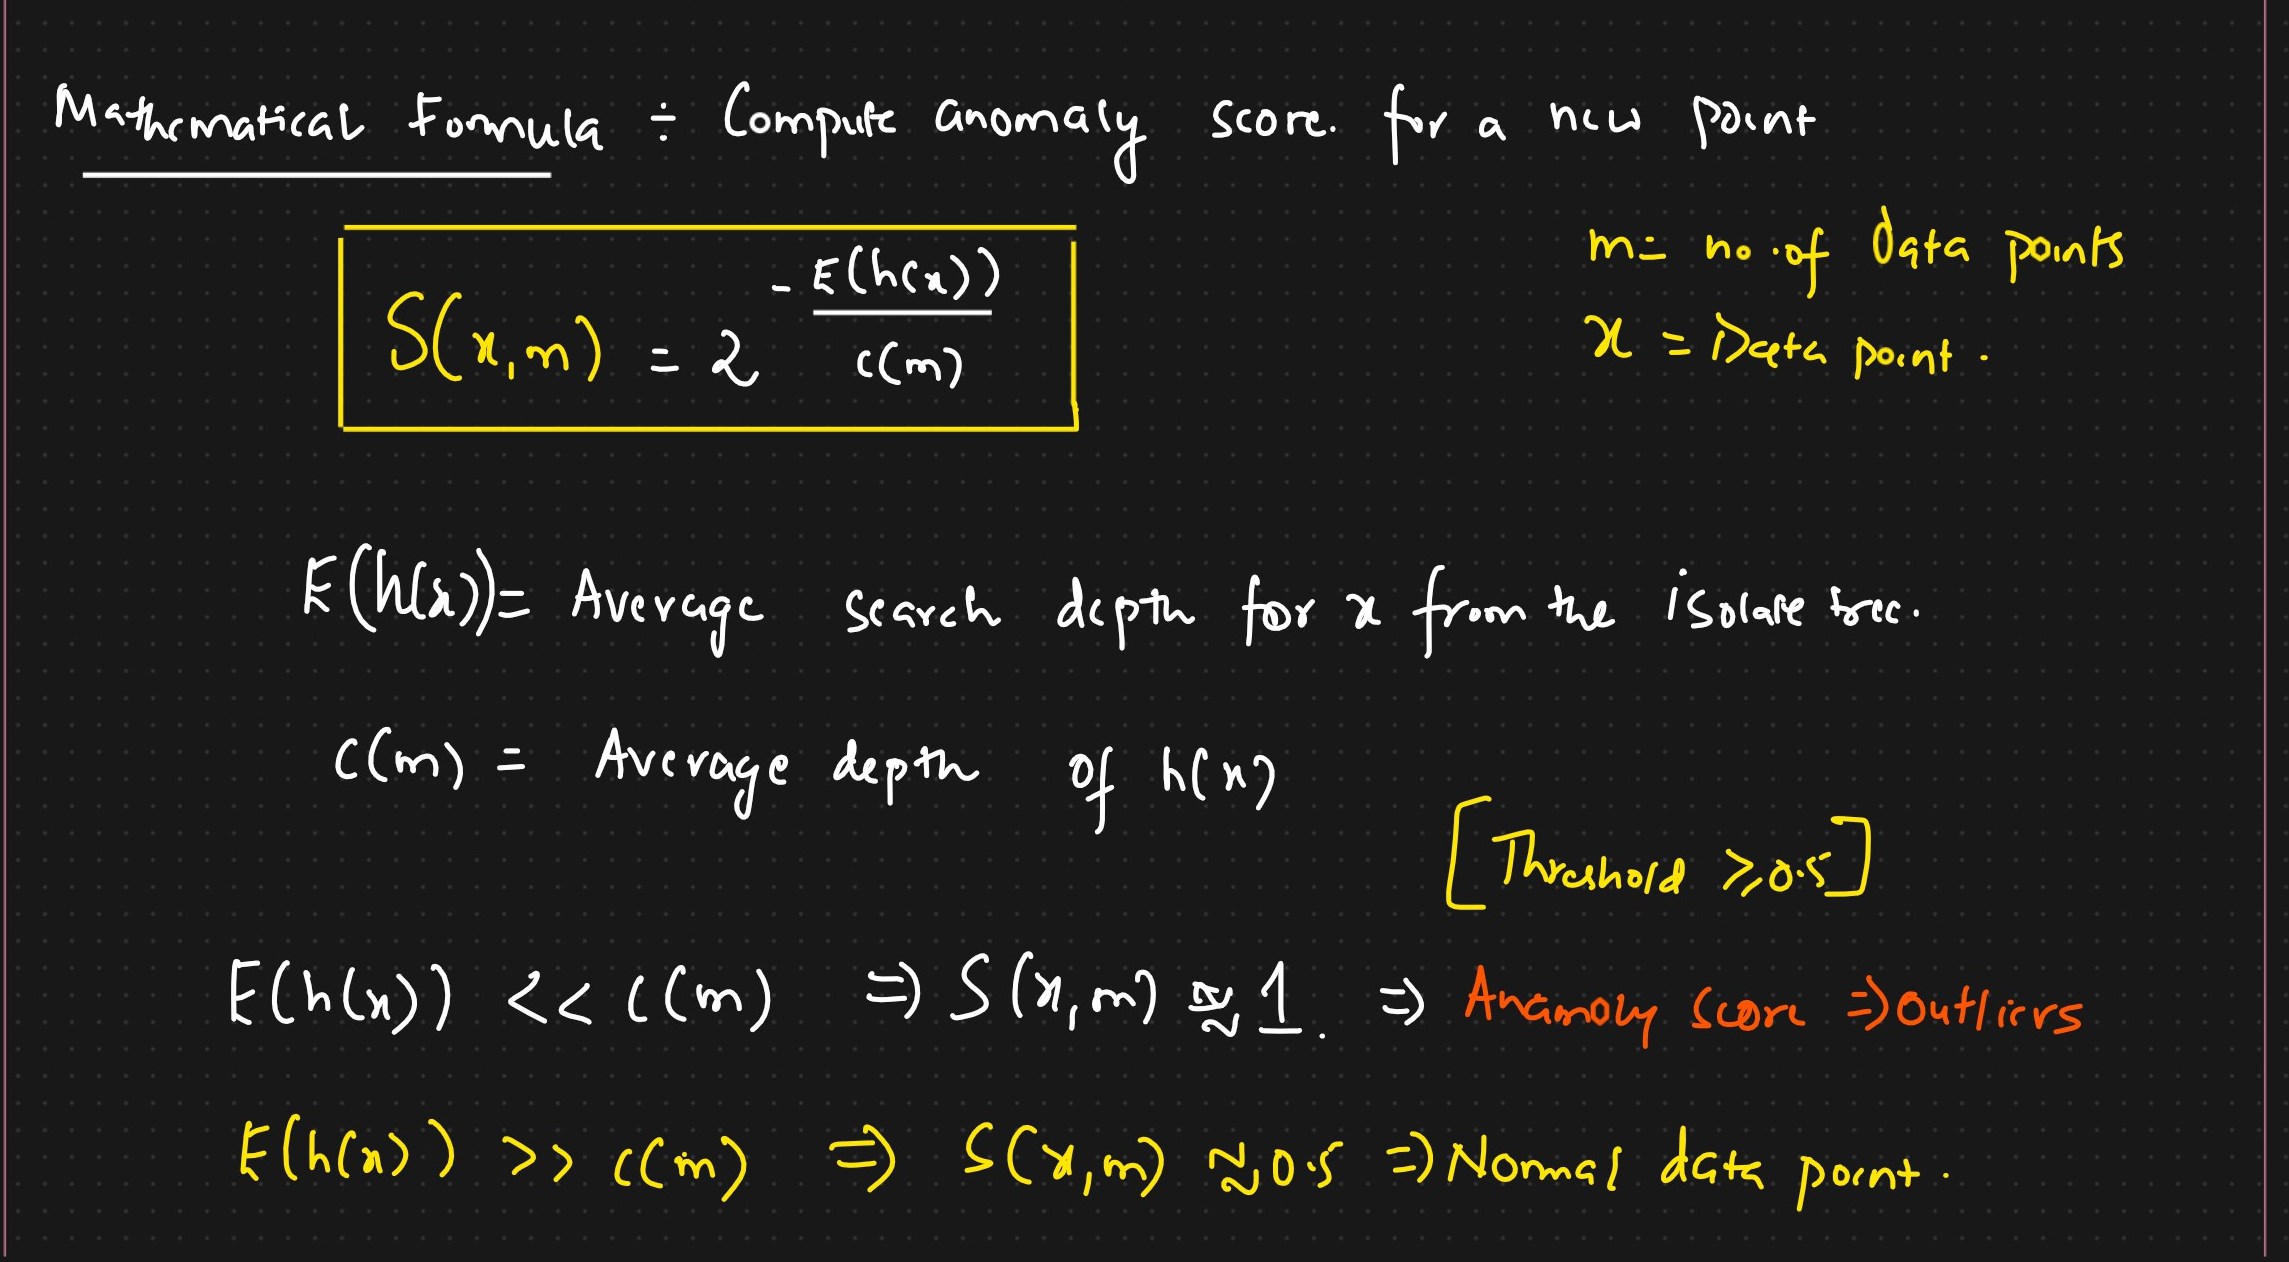 Mathematical Formula ÷ Compute anomaly score. for a new point
m = no. of data points
S(x,m) = 2^(-E(h(x))/c(m))
x = Data point.
E(h(x)) = Average search depth for x from the isolate tree.
c(m) = Average depth of h(x)
[Threshold ≥ 0.5]
E(h(x)) << c(m) ⇒ S(x,m) ≈ 1. ⇒ Anamoly score ⇒ outliers
E(h(x)) >> c(m) ⇒ S(x,m) ≈ 0.5 ⇒ Normal data point.